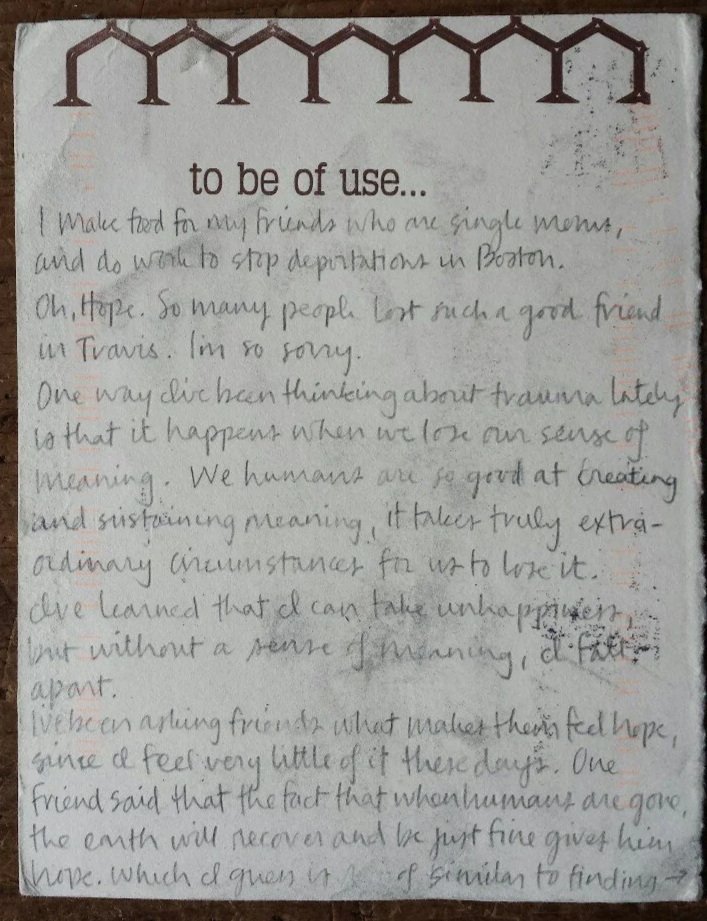 to be of use...
I make food for my friends who are single moms,
and do work to stop deportations in Boston.
Oh, Hope. So many people lost such a good friend
in Travis. I'm so sorry.
One way I've been thinking about trauma lately
is that it happens when we lose our sense of
meaning. We humans are so good at creating
and sustaining meaning, it takes truly extra-
ordinary circumstances for us to lose it.
I've learned that I can take unhappiness,
but without a sense of meaning, I fall
apart.
I've been asking friends what makes them feel hope,
since I feel very little of it these days. One
friend said that the fact that when humans are gone,
the earth will recover and be just fine gives him
hope. Which I guess is of similar to finding →